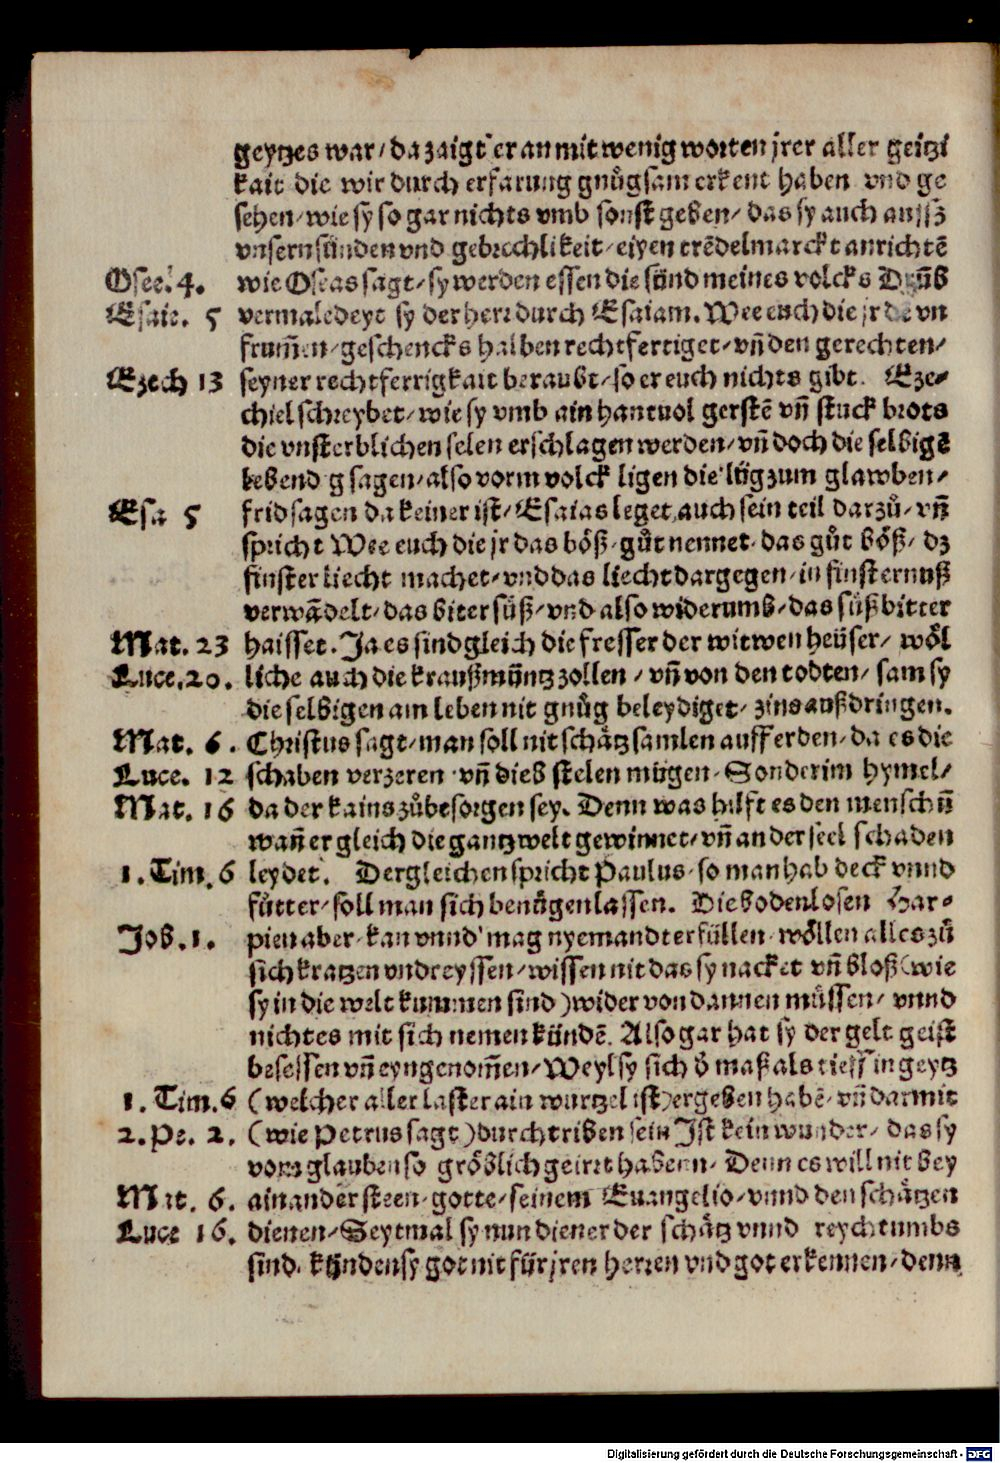 geytzes war/ da zaigt er an mit wenig worten jrer aller geitzi
kait die wir durch erfarung gnůgsam erkent haben vnd ge
sehen/ wie sy so gar nichts vmb sonst geben/ das sy auch aussz
vnsern sünden vnd gebrechlikeit/ eyen trēdelmarckt anrichtē
Osee. 4. wie Oseas sagt/ sy werden essen die sünd meines volcks Drūb
Esaie. 5 vermaledeyt sy der herr durch Esaiam. Wee euch die jr dē vn
frum̄en/ geschencks halben rechtfertiget/ vn̄ den gerechten/
Ezech 13 seyner rechtferrigkait beraubt/ so er euch nichts gibt. Eze/
chiel schreybet/ wie sy vmb ain hantuol gerstē vn̄ stuck brots
die vnsterblichen selen erschlagen werden/ vn̄ doch die selbigē
lebend g sagen/ also vorm volck ligen die lüg zum glawben/
Esa 5 frid sagen da keiner ist/ Esaias leget auch sein teil darzů/ vn̄
spricht Wee euch die jr das böß/ gůt nennet/ das gůt böß/ dz
finster liecht machet/ vnd das liecht dargegen/ in finsternuß
verwādelt/ das biter süß/ vnd also widerumb/ das süß bitter
Mat. 23 haisset. Ja es sind gleich die fresser der witwen heüser/ wöl
Luce. 20. liche auch die kraußmüntz zollen/ vn̄ von den todten/ sam sy
die selbigen am leben nit gnůg beleydiget/ zins außdringen.
Mat. 6. Christus sagt/ man soll nit schätz samlen auff erden/ da es die
Luce. 12 schaben verzeren vn̄ dieb stelen mügen/ Sonder im hymel/
Mat. 16 da der kains zůbesorgen sey. Denn was hilft es den menschn̄
wan̄ er gleich die gantz welt gewinnet/ vn̄ an der seel schaden
1. Tim. 6 leydet. Dergleichen spricht Paulus/ so man hab deck vnnd
fütter/ soll man sich benügen lassen. Die bodenlosen Har/
Job. 1. pien aber/ kan vnnd mag nyemandt erfüllen/ wöllen alles zů
sich kratzen vnd reyssen/ wissen nit das sy nacket vn̄ bloß (wie
sy in die welt kummen sind) wider von dannen müssen/ vnnd
nichtes mit sich nemen kündē. Also gar hat sy der gelt geist
besessen vn̄ eyngenom̄en/ Weyl sy sich d̄ maß als tieff in geytz
1. Tim. 6 (welcher aller laster ain wurtzel ist) ergeben habē/ vn̄ darmit
2. Pe. 2. (wie Petrus sagt) durchtriben sein Ist kein wunder/ das sy
vom glauben so gröblich geirret habenn/ Denn es will nit bey
Mat. 6. ainander steen/ gotte/ seinem Euangelio/ vnnd den schätzen
Luce 16. dienen/ Seytmal sy nun diener der schätz vnnd reychtumbs
sind/ künden sy got nit für jren herren vnd got erkennen/ denn
Digitalisierung gefördert durch die Deutsche Forschungsgemeinschaft - DFG